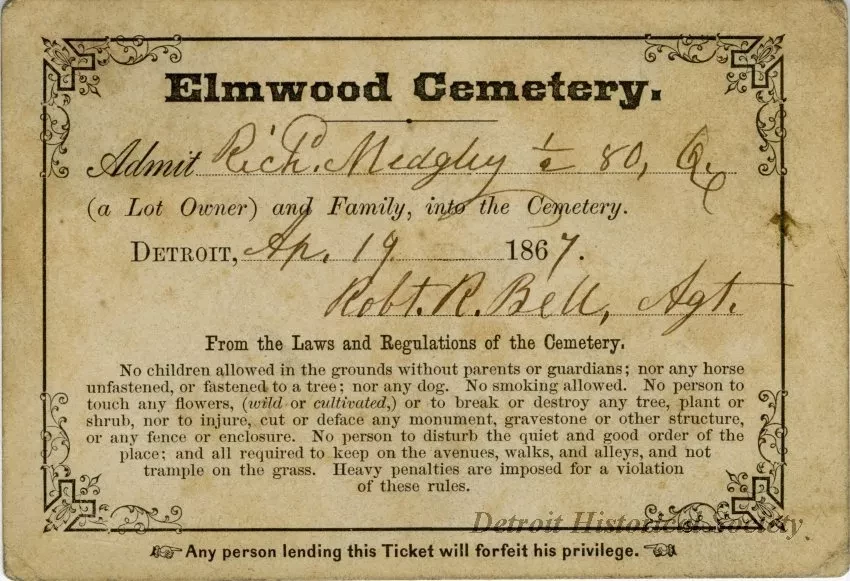 Elmwood Cemetery.
Admit Rich'd. Medgley ½ 80, Q.
(a Lot Owner) and Family, into the Cemetery.
DETROIT, Ap. 19 1867.
Robt. R. Bell, Agt.
From the Laws and Regulations of the Cemetery.
No children allowed in the grounds without parents or guardians; nor any horse
unfastened, or fastened to a tree; nor any dog. No smoking allowed. No person to
touch any flowers, (wild or cultivated,) or to break or destroy any tree, plant or
shrub, nor to injure, cut or deface any monument, gravestone or other structure,
or any fence or enclosure. No person to disturb the quiet and good order of the
place; and all required to keep on the avenues, walks, and alleys, and not
trample on the grass. Heavy penalties are imposed for a violation
of these rules.
Detroit Historical Society
Any person lending this Ticket will forfeit his privilege.